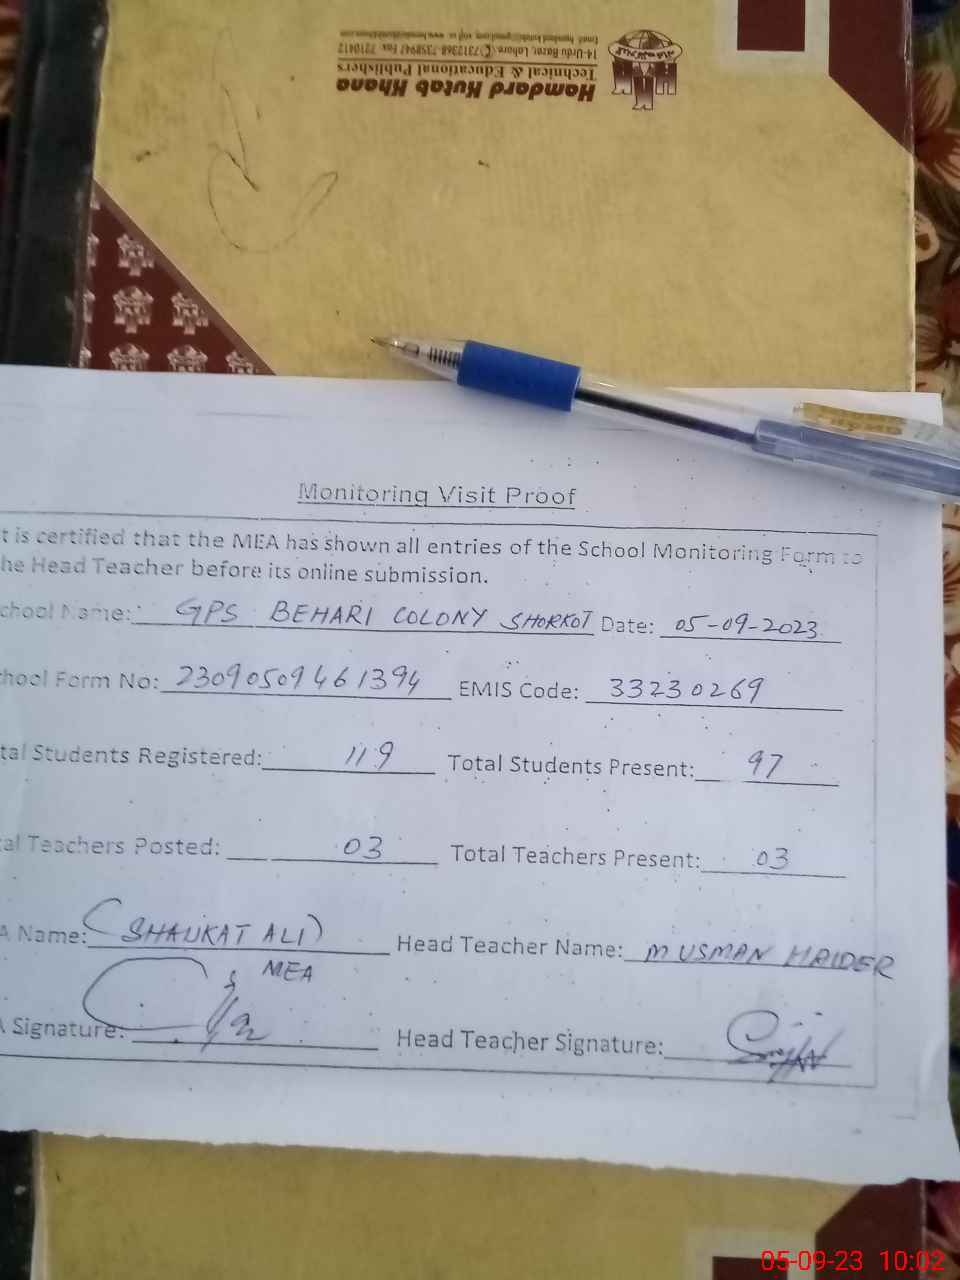 Hamdard Kutab Khana
Technical & Educational Publishers
Monitoring Visit Proof
t is certified that the MEA has shown all entries of the School Monitoring Form to
he Head Teacher before its online submission.
chool Name: GPS BEHARI COLONY SHORKOT Date: 05-09-2023
hool Form No: 23090509461394 EMIS Code: 33230269
tal Students Registered: 119 Total Students Present: 97
al Teachers Posted: 03 Total Teachers Present: 03
A Name: (SHAUKAT ALI) Head Teacher Name: M USMAN HAIDER
MEA
A Signature: Head Teacher Signature:
05-09-23 10:02